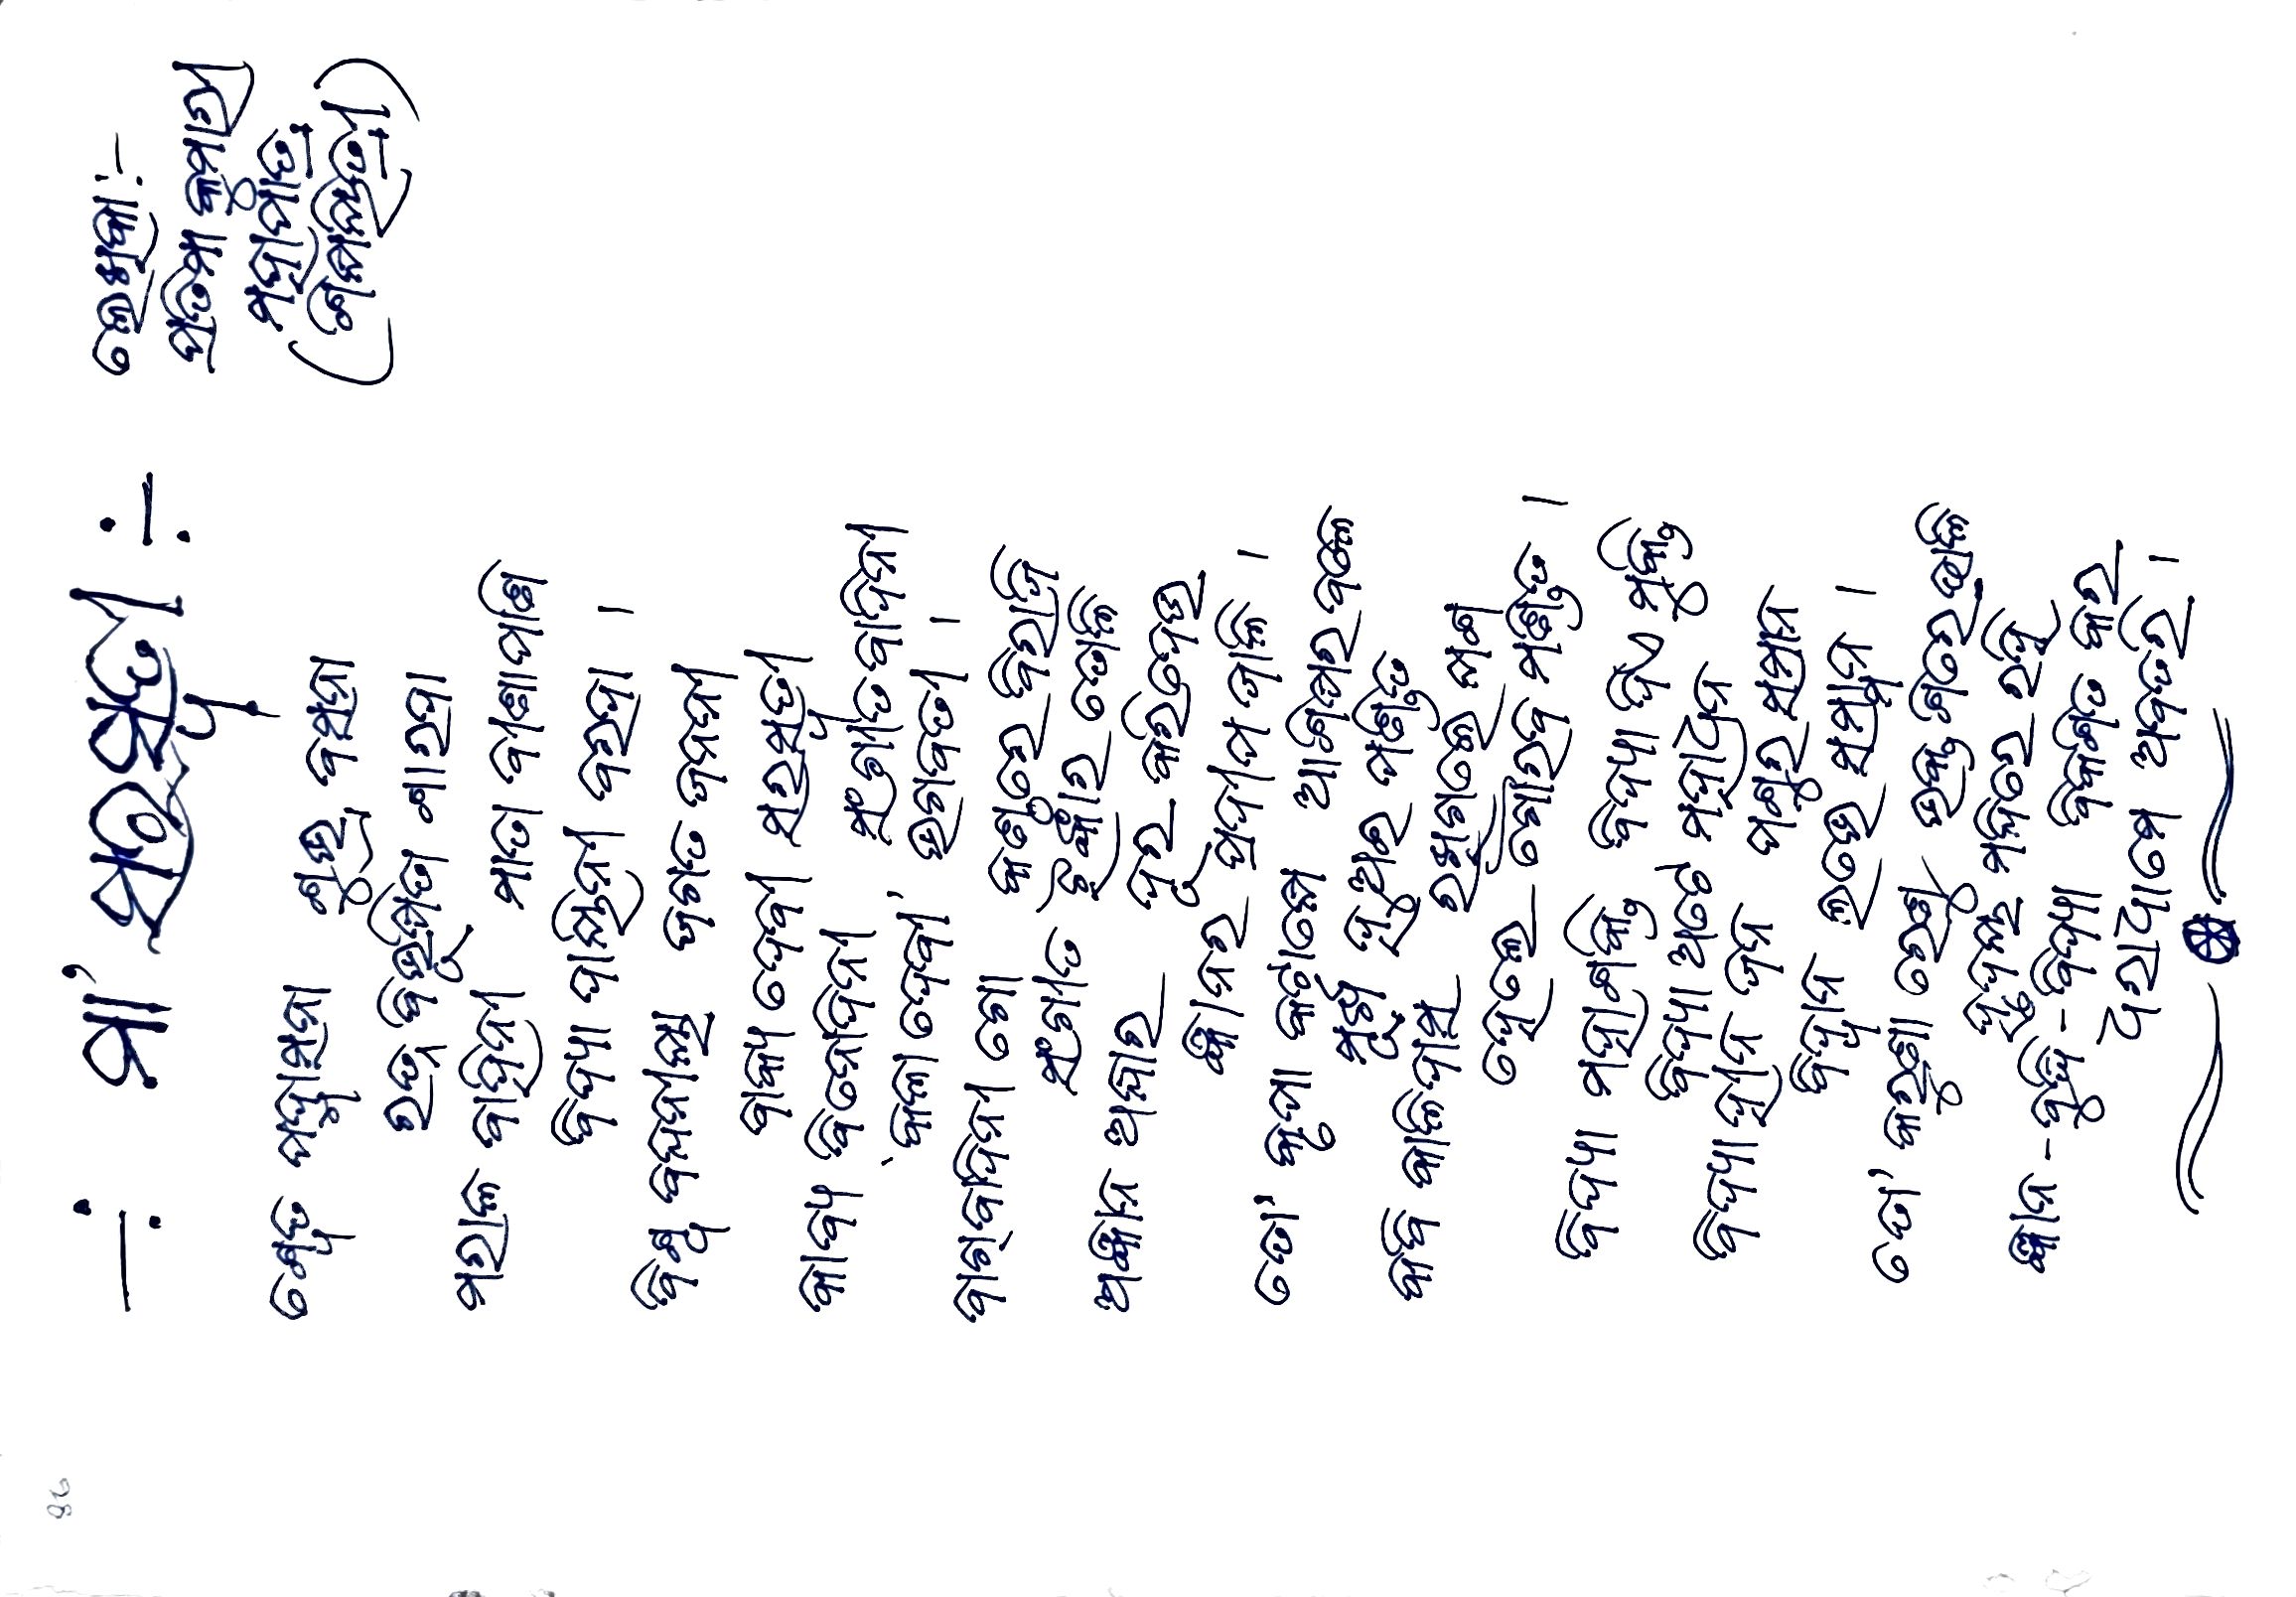 86
-: ମା' ସରସ୍ୱତୀ :-
ଲେଖିକା:-
ପ୍ରତିମା କୁମାରୀ
ମହାପାତ୍ର
(ଶିକ୍ଷୟିତ୍ରୀ)
ଶ୍ୱେତ ପଦ୍ମାସନା ଶୁଭ୍ର ବସନା
ରତ୍ନ ବିଭୂଷିତା ଶାରଦା
ମରାଳ ବାହିନୀ ମାତା ବୀଣାପାଣି
ବିଦ୍ୟା ଦାୟିନୀ ବରଦା ।
ବିଶ୍ୱ ବନ୍ଦନୀୟା ଜଗତ ଜନନୀ
ବାକ୍ୟ ଦେବୀ ସରସ୍ୱତୀ
କାବ୍ୟ ବିନୋଦିନୀ ସଂଗୀତ ବାଦିନୀ
'କଳା ଦେବୀ' ଭଗବତୀ ।
ବାଗ୍‌ବାଦିନୀ ଗୋ କଣ୍ଠରେ ବିରାଜି
ସଂଗୀତ ଝଙ୍କାର ତୋଳି
ଅଜ୍ଞାନ ଅନ୍ଧାର ଦୂର କରିଦେଉ
ଜ୍ଞାନର ପ୍ରଦୀପ ଜାଳି ।
ତୋ' କୃପା କଟାକ୍ଷେ ଆଶିଷର ବଳେ
ମୂର୍ଖ ହୁଅଇ ପଣ୍ଡିତ
କବି କାଳିଦାସ ରଖିଗଲେ ଯଶ
ହେଲେ ଗୌରବ ମଣ୍ଡିତ ।
ବିଦ୍ୟା ମହାଶକ୍ତି ବିଦ୍ୟା ଦିଏ ମୁକ୍ତି
ବିଦ୍ୟା ଅଟେ ମହାଧନ
ବିଦ୍ୟାହୀନ ଜନ ପଶୁର ସମାନ
ବିଦ୍ୱାନ ଲଭେ ସମ୍ମାନ ।
ତୋ' କରୁଣା ରେଣୁ ଭକ୍ତ ଶିରେ ଢାଳି
ହୃଦୟ ମନ୍ଦିରେ ରହି
ଜ୍ଞାନ - ବୁଦ୍ଧି - ବିଦ୍ୟା ବିକଶିତ କର
ଧରାଧାମେ ଅବତରି ।